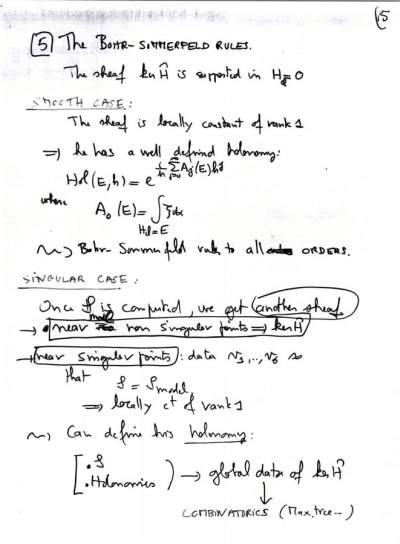 15
5 The BOHR-SOMMERFELD RULES.
The sheaf ker Ĥ is supported in H = 0
SMOOTH CASE:
The sheaf is locally constant of rank 1
⇒ he has a well defined holonomy:
Hol(E,h) = e^{i/h Σ A_j(E)h^j}
where A_0(E) = ∫_{H=E} ξdx
~> Bohr-Sommerfeld rules to all ORDERS.
SINGULAR CASE:
Once is computed, we get another sheaf
→ • near non singular points ⇒ ker Ĥ
→ near singular points: data so
that = model
⇒ locally c^t of rank 1
~> Can define his holonomy:
• Holonomies → global data of ker Ĥ
↓
COMBINATORICS (Max. tree...)